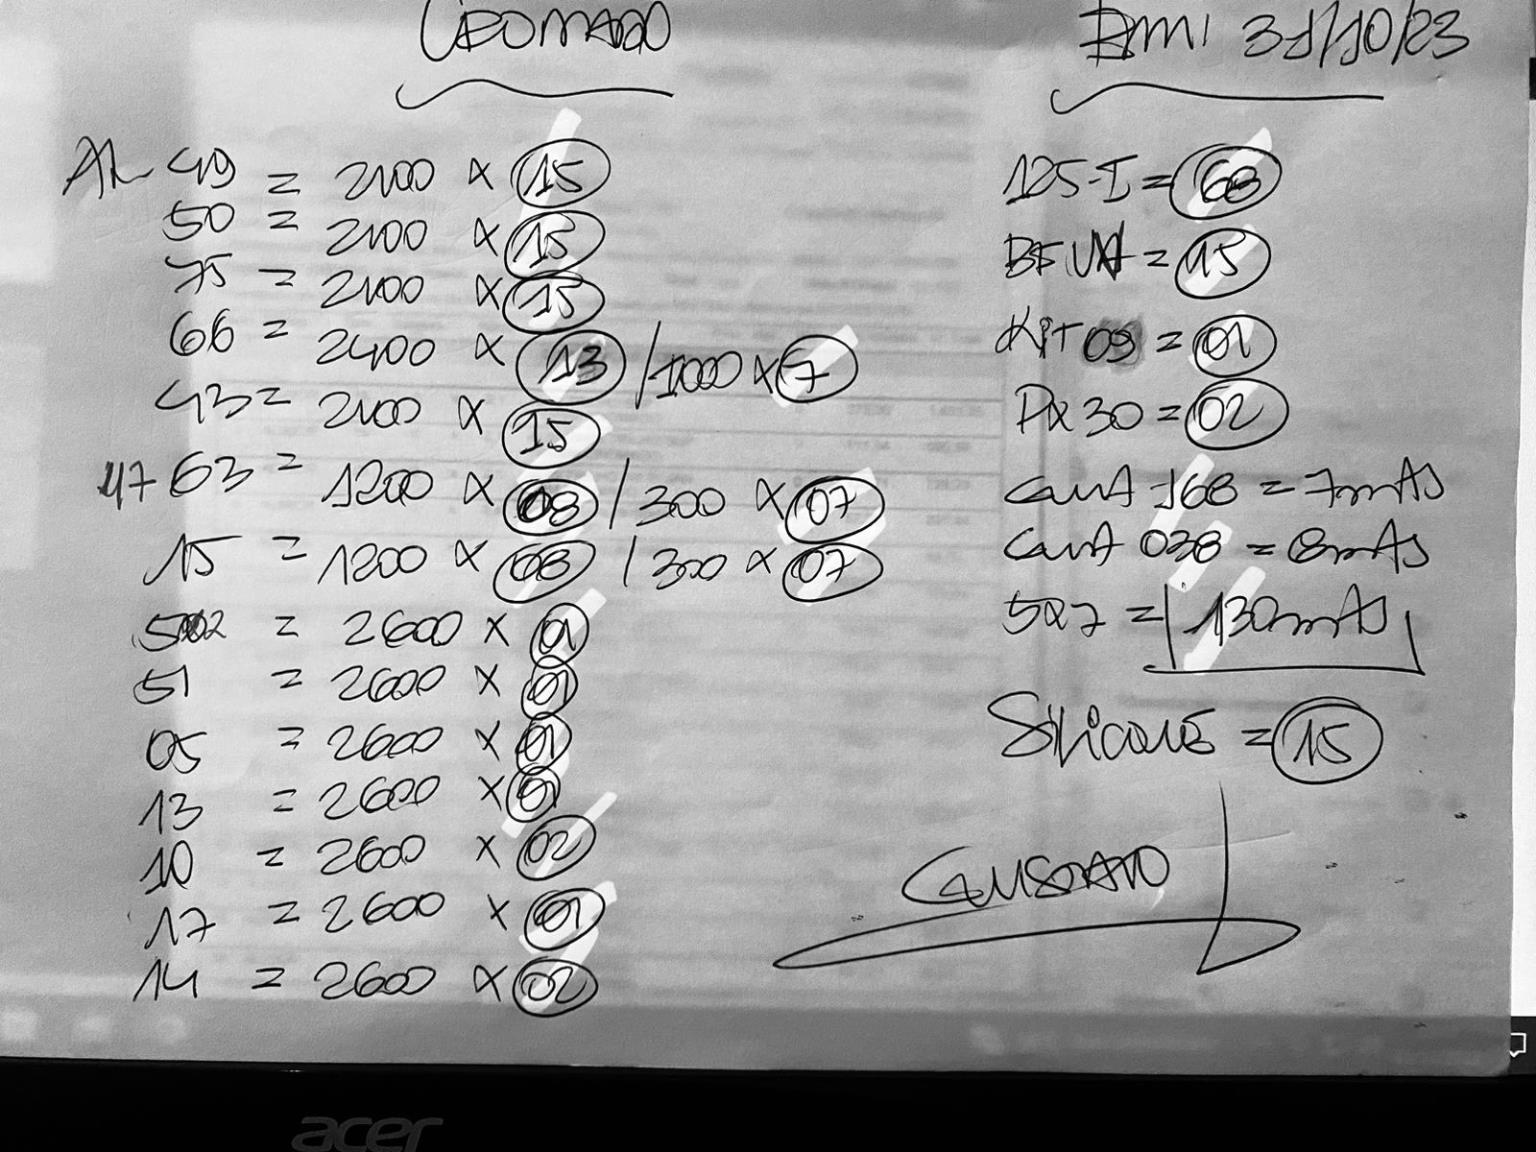 LEONARDO
EMI 31/10/23
AL 49 = 2100 x 15
50 = 2100 x 15
75 = 2100 x 15
66 = 2400 x 13 / 1000 x 7
43 = 2100 x 15
47 63 = 1200 x 08 / 300 x 07
15 = 1200 x 08 / 300 x 07
502 = 2600 x 01
51 = 2600 x 01
05 = 2600 x 01
13 = 2600 x 01
10 = 2600 x 02
17 = 2600 x 01
14 = 2600 x 02
125-I = 68
= 15
KIT 09 = 01
PX 30 = 02
GUIA 168 = 7mts
GUIA 038 = 8mts
527 = 130mts
SILICONE = 15
GUSTAVO
acer